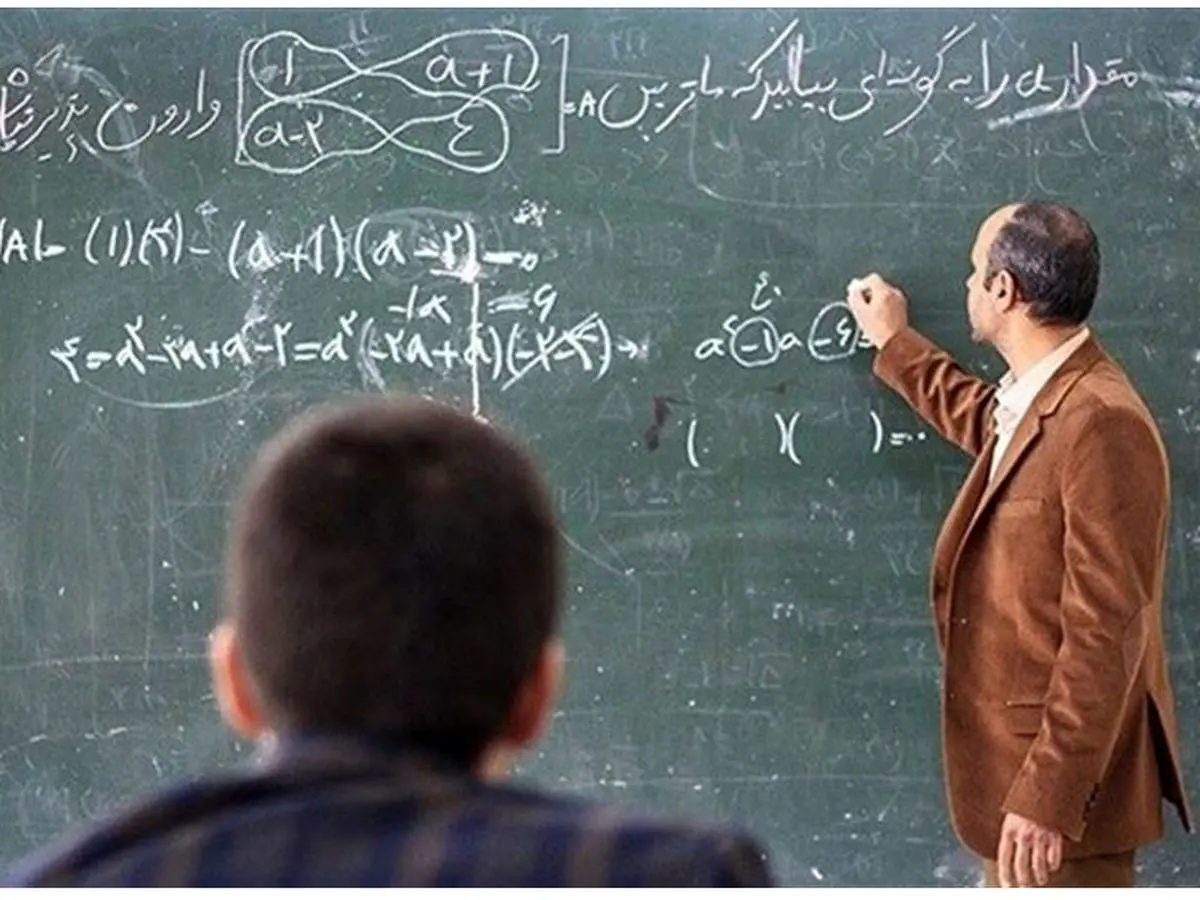 مقدار a را به گونه‌ای بیابید که ماتریس A = [۱ a+۱ a-۲ ٤] وارون پذیر نباشد
|A| = (۱)(۴) - (a+۱)(a-۲) = ۰
۴ = a^۲ - ۲a + a - ۲ = a^۲ (-۲a + a)(-۲-۴) →
-۱a = ۶
a^۲ -۱ a -۶ =
( )( ) = ۰